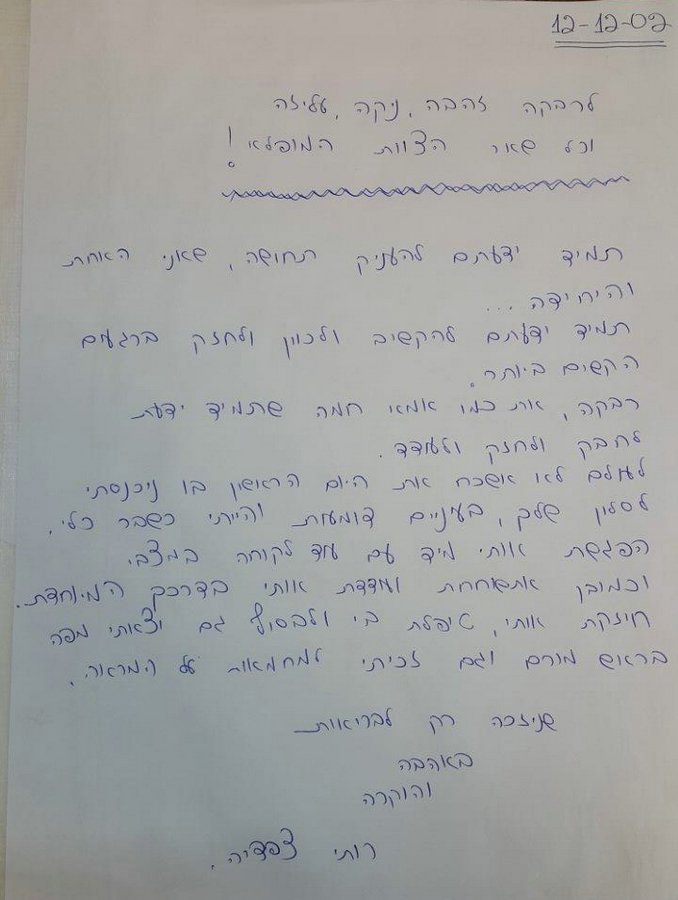 12-12-02
לרבקה זהבה, ניקה, עליזה
וכל שאר הצוות המופלא!
תמיד ידעתם להעניק תחושה, שאני האחת
והיחידה...
תמיד ידעתם להקשיב ולכוון ולחזק ברגעים
הקשים ביותר.
רבקה, את כמו אמא חמה שתמיד ידעת
לחבק ולחזק ולעודד.
לעולם לא אשכח את היום הראשון בו ניכנסתי
לסלון שלך, בעיניים דומעות והייתי כשבר כלי.
הפגשת אותי מיד עם עוד לקוחה במצבי
וכמובן את שוחחת ועודדת אותי בדרכך המיוחדת.
חיזקת אותי, טיפלת בי ולבסוף גם יצאתי מפה
בראש מורם וגם זכיתי למחמאות על המראה.
שניזכה רק לבריאות
באהבה
והוקרה
רותי צפדיה.